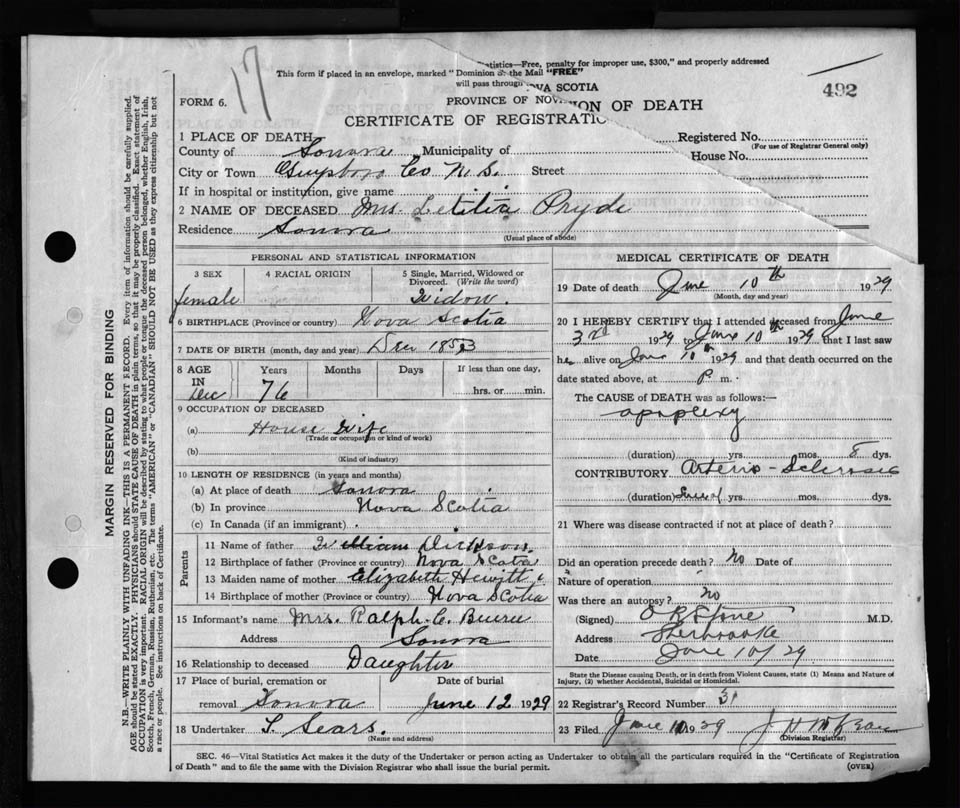 17
492
This form if placed in an envelope, marked "Dominion S
tistics—Free, penalty for improper use, $300," and properly addressed
the Mail "FREE"
will pass through
VA SCOTIA
FORM 6.
PROVINCE OF NOV
ION OF DEATH
CERTIFICATE OF REGISTRATIO
1 PLACE OF DEATH
County of Sonora Municipality of
Registered No.
(For use of Registrar General only)
House No.
City or Town Guysboro Co N.S. Street
If in hospital or institution, give name
2 NAME OF DECEASED Mrs. Letitia Pryde
Residence Sonora
(Usual place of abode)
PERSONAL AND STATISTICAL INFORMATION
3 SEX
female
4 RACIAL ORIGIN
5 Single, Married, Widowed or
Divorced. (Write the word)
Widow.
6 BIRTHPLACE (Province or country) Nova Scotia
7 DATE OF BIRTH (month, day and year) Dec 1853
8 AGE
IN
Dec
Years
76
Months
Days
If less than one day,
hrs. or min.
9 OCCUPATION OF DECEASED
(a) House Wife
(Trade or occupation or kind of work)
(b)
(Kind of industry)
10 LENGTH OF RESIDENCE (in years and months)
(a) At place of death Sonora
(b) In province Nova Scotia
(c) In Canada (if an immigrant)
Parents
11 Name of father William Dickson.
12 Birthplace of father (Province or country) Nova Scotia
13 Maiden name of mother Elizabeth Hewitt
14 Birthplace of mother (Province or country) Nova Scotia
15 Informant's name Mrs. Ralph C.
Address Sonora
16 Relationship to deceased Daughter
17 Place of burial, cremation or
removal Sonora
Date of burial
June 12 1929
18 Undertaker T. Sears.
(Name and address)
MEDICAL CERTIFICATE OF DEATH
19 Date of death June 10th 1929
(Month, day and year)
20 I HEREBY CERTIFY that I attended deceased from June
3rd 1929 to June 10th 1929 that I last saw
h alive on June 10th 1929 and that death occurred on the
date stated above, at P m.
The CAUSE of DEATH was as follows:—
apoplexy
(duration) yrs. mos. 8 dys.
CONTRIBUTORY Arterio-Sclerosis
(duration) Several yrs. mos. dys.
21 Where was disease contracted if not at place of death?
Did an operation precede death? no Date of
Nature of operation
Was there an autopsy? no
(Signed) M.D.
Address Sherbrooke
Date June 10/29
State the Disease causing Death, or in death from Violent Causes, state (1) Means and Nature of
Injury, (2) whether Accidental, Suicidal or Homicidal.
22 Registrar's Record Number 31
23 Filed June 1929
(Division Registrar)
SEC. 46—Vital Statistics Act makes it the duty of the Undertaker or person acting as Undertaker to obtain all the particulars required in the "Certificate of Registration
of Death" and to file the same with the Division Registrar who shall issue the burial permit.
(OVER)
MARGIN RESERVED FOR BINDING
N.B.—WRITE PLAINLY WITH UNFADING INK—THIS IS A PERMANENT RECORD. Every item of information should be carefully supplied.
AGE should be stated EXACTLY. PHYSICIANS should STATE CAUSE OF DEATH in plain terms, so that it may be properly classified. Exact statement of
OCCUPATION is very important. RACIAL ORIGIN will be described by stating to what people or tongue the deceased person belonged, whether English, Irish,
Scotch, French, German, Russian, Ruthenian, etc. The terms "AMERICAN" or "CANADIAN" SHOULD NOT BE USED as they express citizenship but not
a race or people. See instructions on back of Certificate.